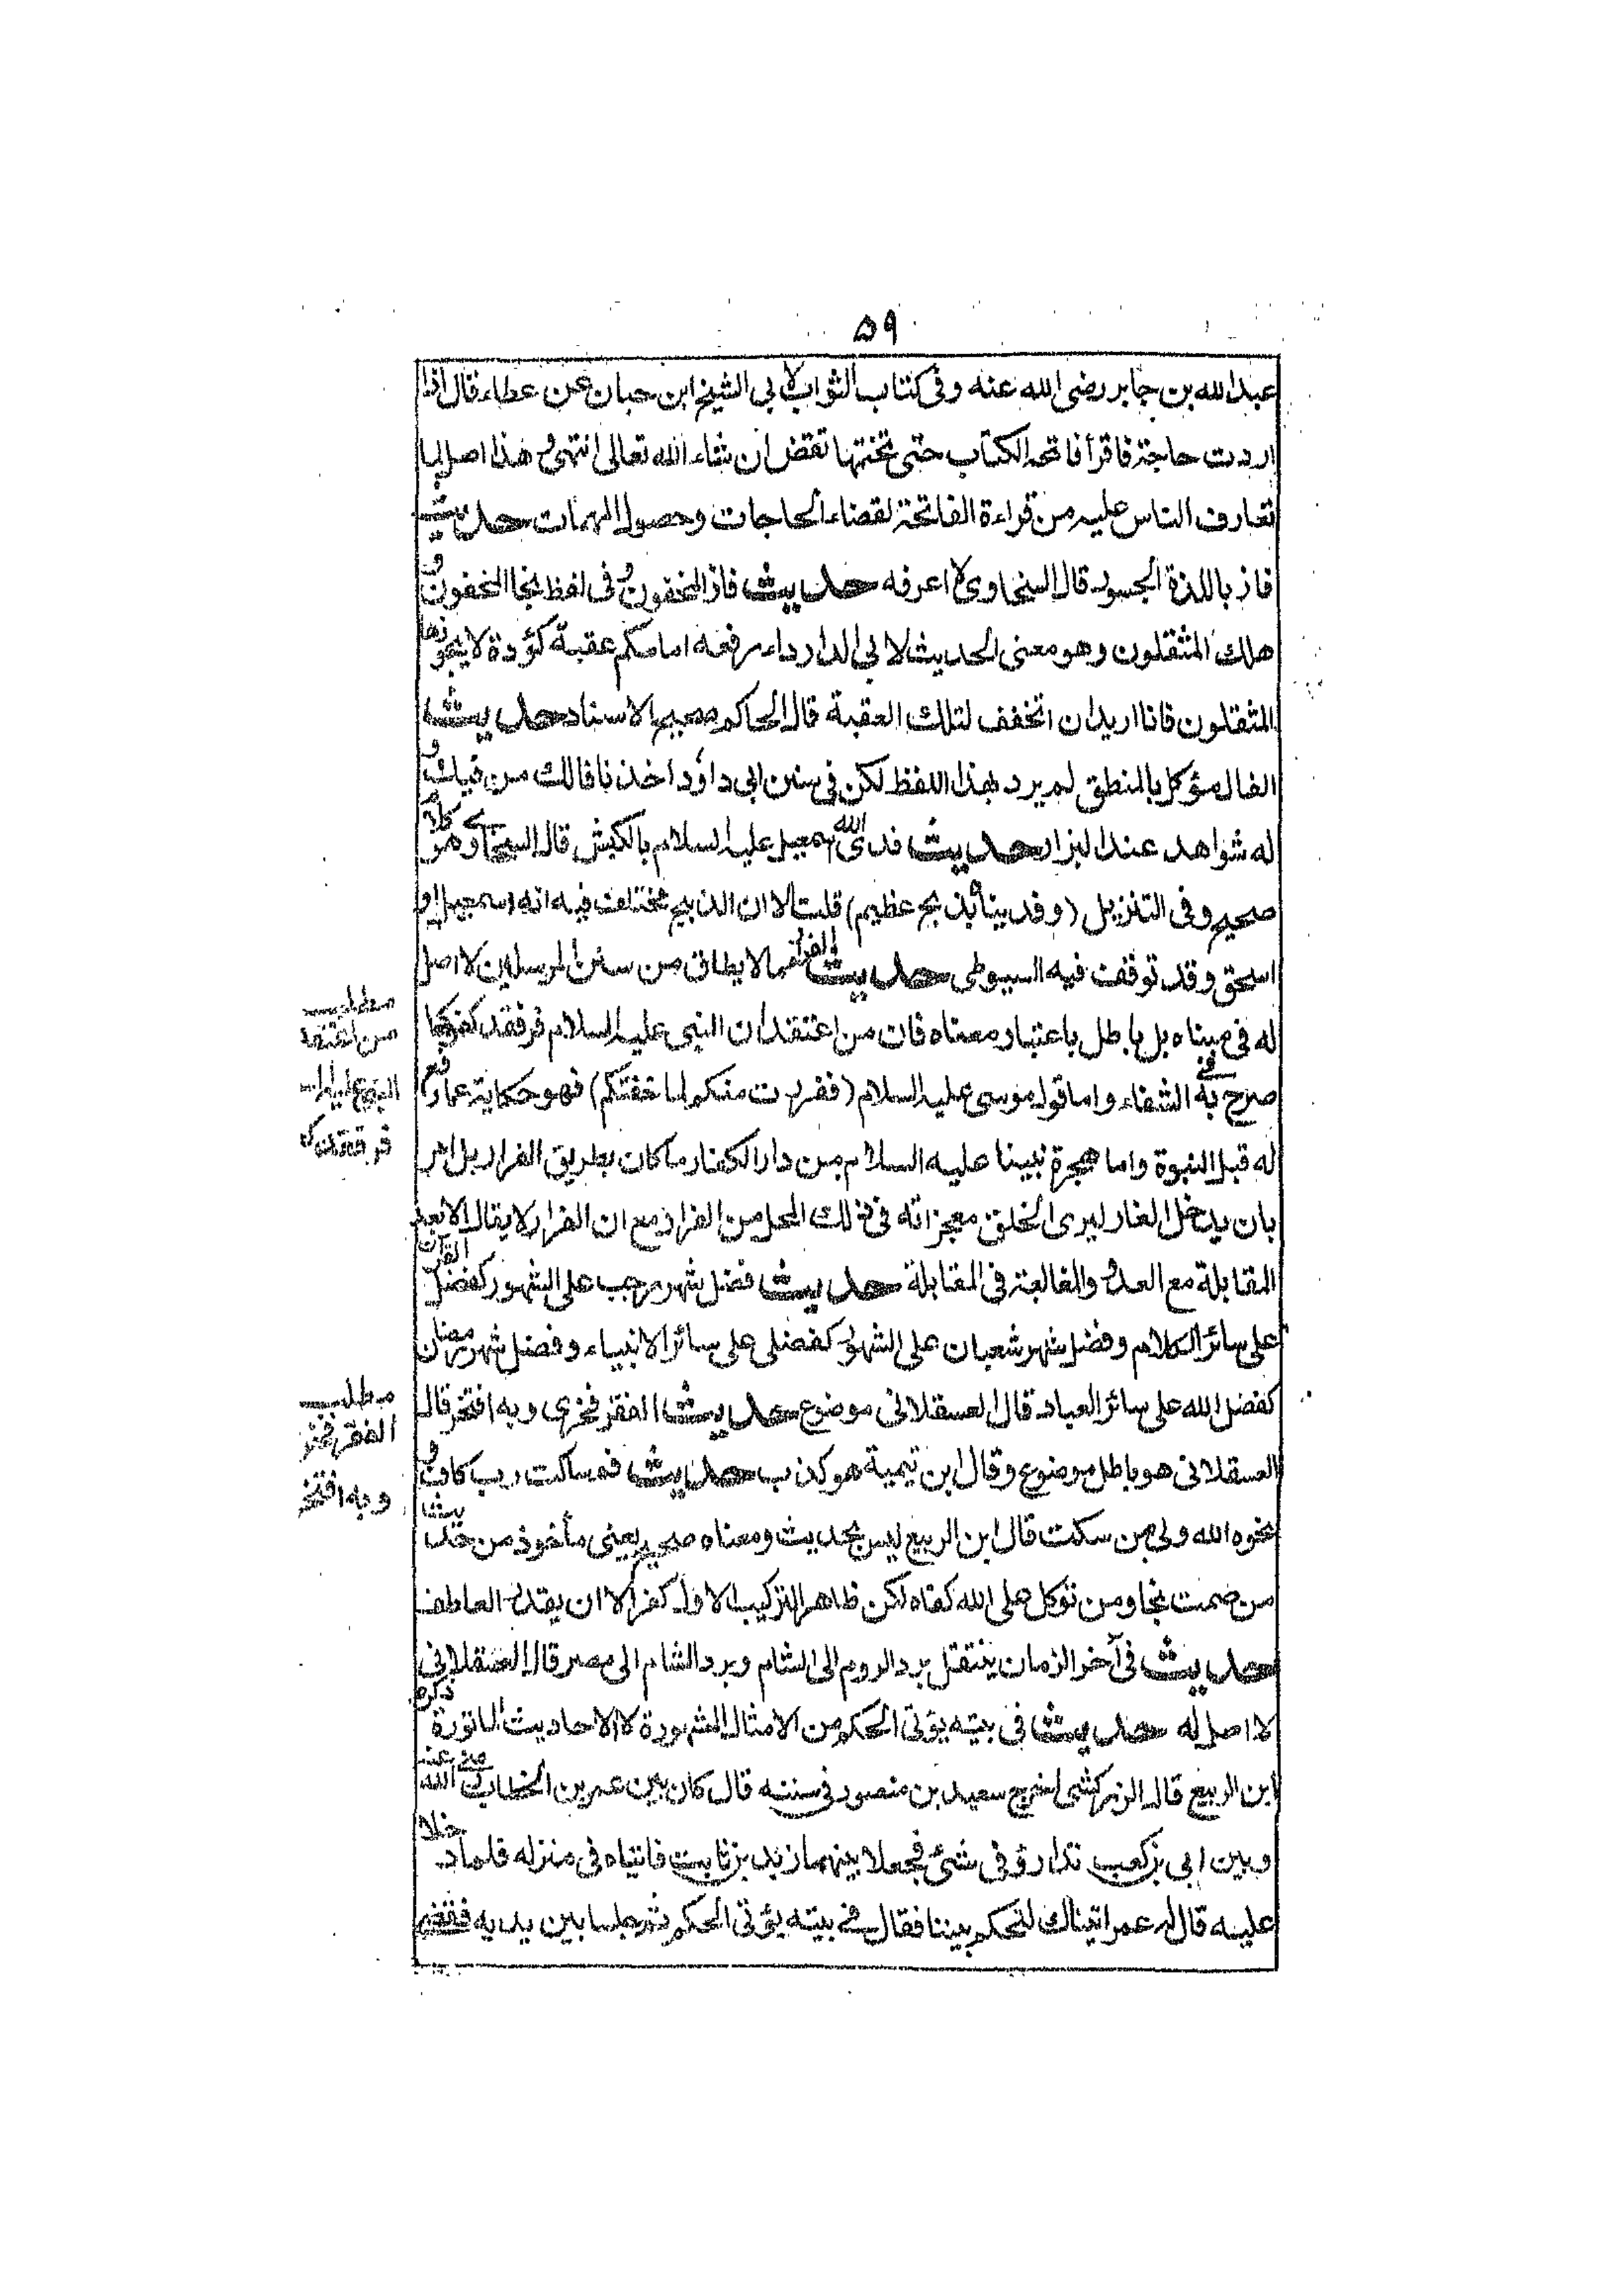 ٥٩
عبدالله بن جابر رضى الله عنه وفى كتاب الثواب لابى الشيخ ابن حبان عن عطاء قال اذا
اردت حاجة فاقرأ فاتحة الكتاب حتى تختمها تقض ان شاء الله تعالى انتهى وهذا اصل لما
تعارف الناس عليه من قراءة الفاتحة لقضاء الحاجات وحصول المهمات حديث
فاز باللذة الجسور قال السخاوى لا اعرفه حديث فاز المخفون وفى لفظ نجا المخفون و
هلك المثقلون وهو معنى الحديث لابى الدارداء رفعه امامكم عقبة كؤدة لا يجوزها
المثقلون فانا اريد ان اتخفف لتلك العقبة قال الحاكم صحيح الاسناد حديث
الفال مؤكل بالمنطق لم يرد بهذا اللفظ لكن فى سنن ابى داؤد اخذنا فالك من فيك و
له شواهد عند البزار حديث فدى الله اسمعيل عليه السلام بالكبش قال السخاوى كلام وهو
صحيح وفى التنزيل (وفديناه بذبح عظيم) قلت الا ان الذبيح مختلف فيه انه اسمعيل او
اسحق وقد توقفت فيه السيوطى حديث الفرار مما لا يطاق من سنن المرسلين لا اصل
له فى مبناه بل باطل باعتبار معناه فان من اعتقد ان النبى عليه السلام فر فقد كفر كما
صرح به فى الشفاء واما قول موسى عليه السلام (ففررت منكم لما خفتكم) فهو حكاية عما وقع
له قبل النبوة واما هجرة نبينا عليه السلام من دار الكفار ما كان بطريق الفرار بل امر
بان يدخل الغار ليرى الخلق معجزاته فى ذلك المحل من الفرار مع ان الفرار لا يقال الا بعد
المقابلة مع العدو والمغالبة فى المقابلة حديث فضل شهر رجب على الشهور كفضل القرآن
على سائر الكلام وفضل شهر شعبان على الشهور كفضلى على سائر الانبياء وفضل شهر رمضان
كفضل الله على سائر العباد قال العسقلانى موضوع حديث الفقر فخرى وبه افتخر قال
العسقلانى هو باطل موضوع وقال ابن تيمية هو كذب حديث فم ساكت رب كاف و
نحوه الله ولى من سكت قال ابن الربيع ليس بحديث ومعناه صحيح يعنى مأخوذ من حديث
من صمت نجا ومن توكل على الله كفاه لكن ظاهر التركيب الاول كفر الا ان يقدر العاطف
حديث فى آخر الزمان ينتقل برد الروم الى الشام وبرد الشام الى مصر قال العسقلانى
لا اصل له حديث فى بيته يؤتى الحكم من الامثال المشهورة لا الاحاديث الماثورة ذكره
ابن الربيع قال الزركشى اخرج سعيد بن منصور فى سننه قال كان بين عمر بن الخطاب رضى الله عنه
وبين ابى بن كعب تدارؤ فى شئ فجعلا بينهما زيد بن ثابت فاتياه فى منزله فلما دخلا
عليه قال له عمر اتيناك لتحكم بيننا فقال فى بيته يؤتى الحكم ثم جلسا بين يديه فقضى
مطلب
من اعتقد
النبى عليه السلام
فر فقد ك
مطلب
الفقر فخر
وبه افتخر